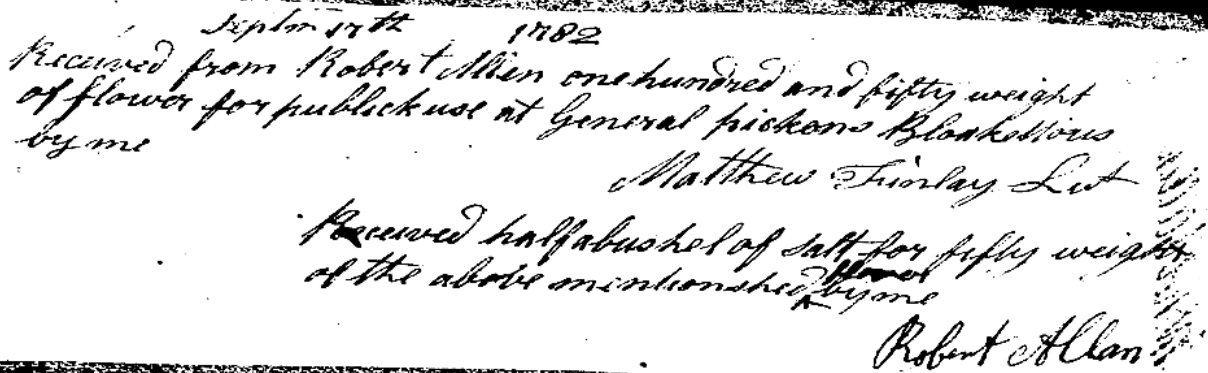 Septm 17th 1782
Received from Robert Allen one hundred and fifty weight
of flower for publick use at General pickons Bloakehous
by me
Matthew Finlay Lut
Received half a bushel of salt for fifty weight
of the above mentionshed flower by me
Robert Allan